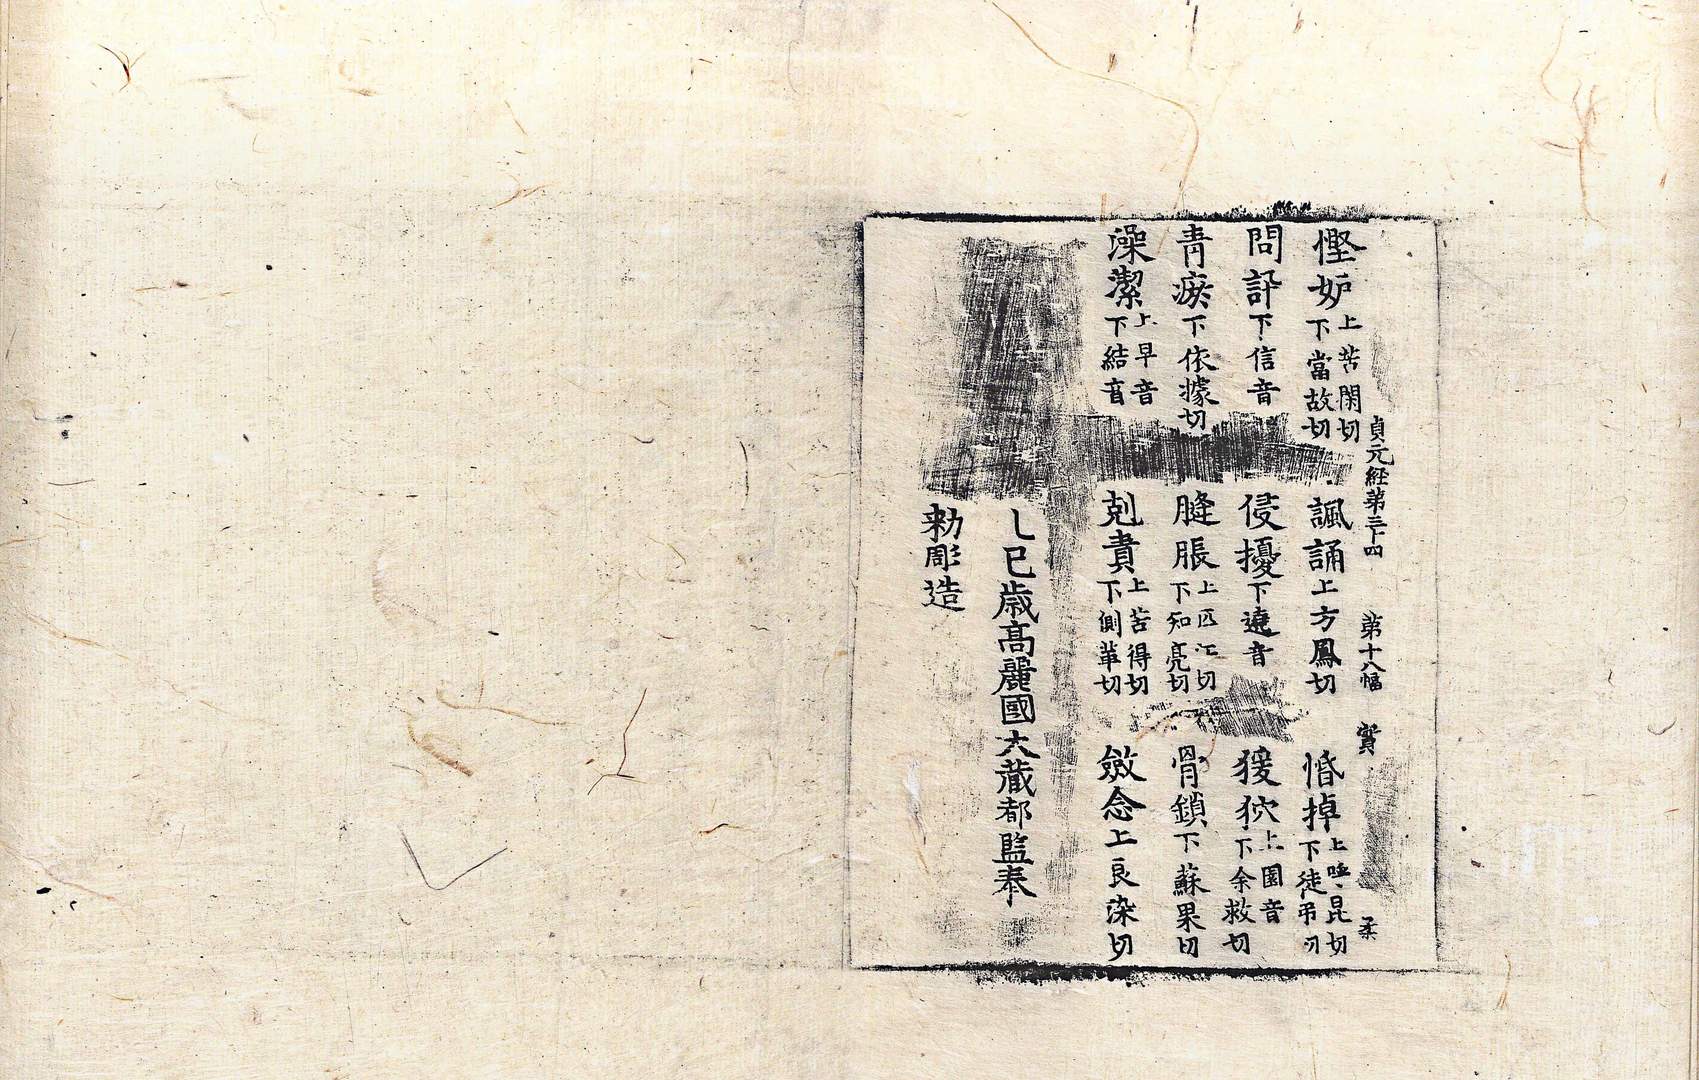 貞元経第三十四 第十八幅 實 柔
慳妬上苦閑切下當故切 諷誦上方鳳切 惛掉上呼昆切下徒弔切
問訃下信音 侵擾下遶音 猨狖上園音下余救切
青瘀下依據切 膖脹上匹江切下知亮切 骨鎖下蘇果切
澡潔上早音下結音 剋責上苦得切下側革切 斂念上良染切
乙巳歳高麗國大藏都監奉
勅彫造